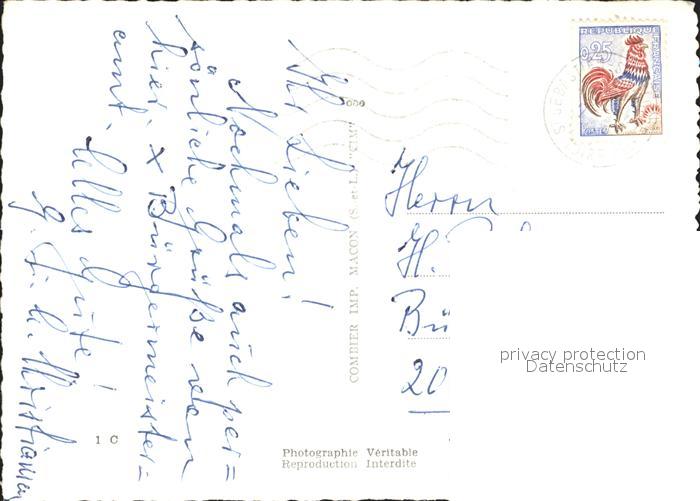 Ihr Lieben!
Nochmals auch per=
sönliche Grüße von
hier. X Bürgermeister=
amt. Alles Gute!
COMBIER IMP. MACON (S.-et-L.) "CIM"
REPUBLIQUE FRANÇAISE
0,25
POSTES
Herrn
H.
Bü
20
privacy protection
Datenschutz
1 C
Photographie Véritable
Reproduction Interdite